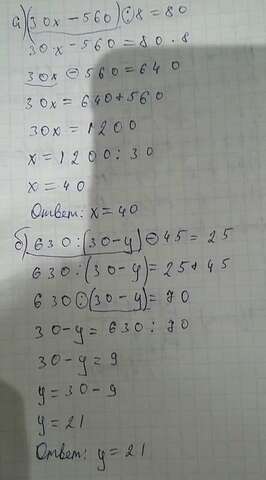 а) (30х – 560) : 8 = 80
30·х – 560 = 80 · 8
30х – 560 = 640
30х = 640 + 560
30х = 1200
х = 1200 : 30
х = 40
Ответ: х = 40
б) 630 : (30 – у) – 45 = 25
630 : (30 – у) = 25 + 45
630 : (30 – у) = 70
30 – у = 630 : 70
30 – у = 9
у = 30 – 9
у = 21
Ответ: у = 21